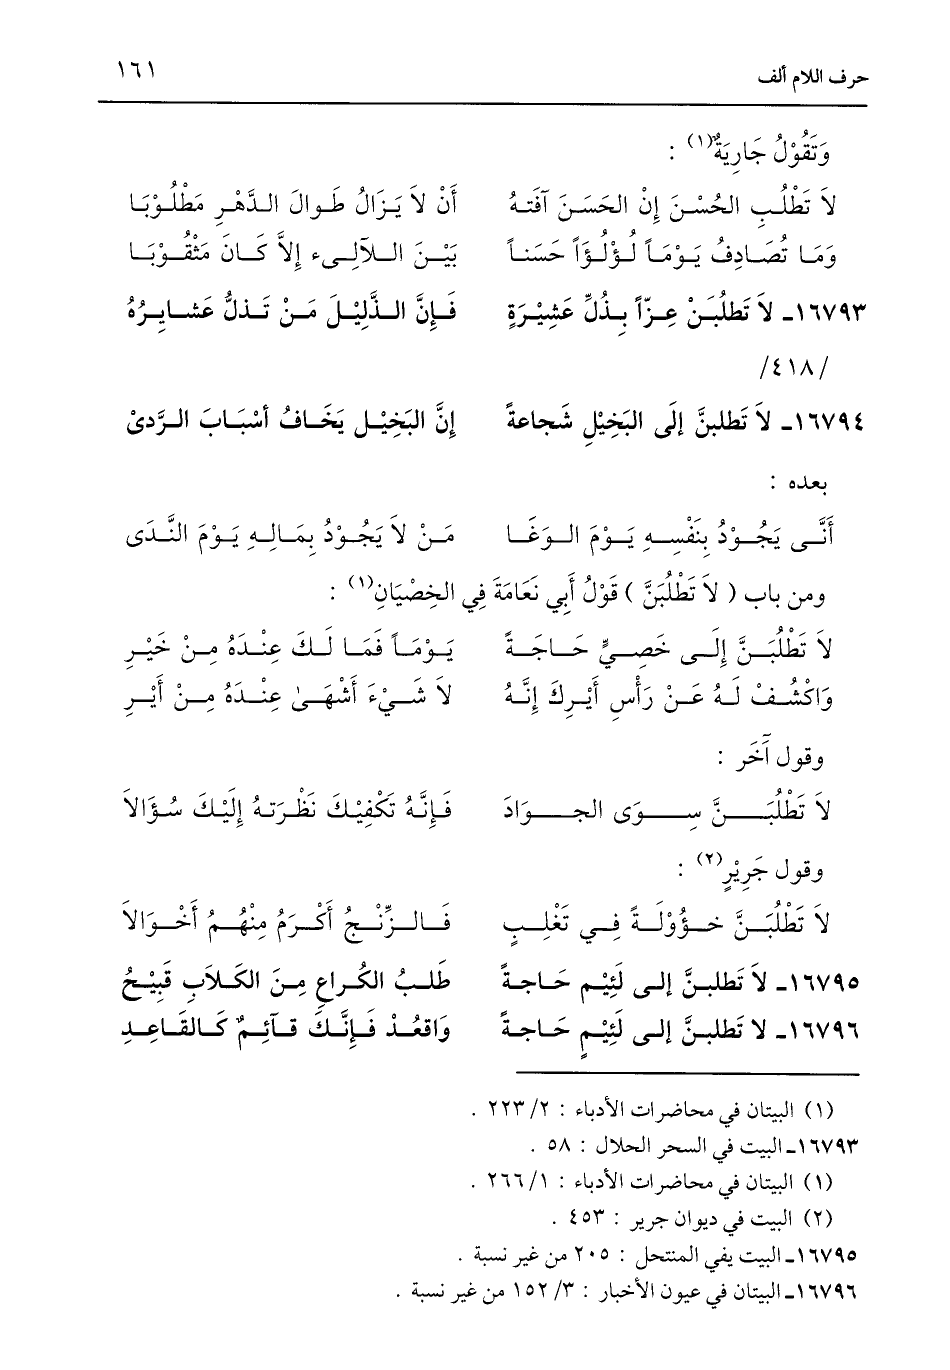 حرف اللام ألف ١٦١
وَتَقُوْلُ جَارِيَةٌ(١) :
لاَ تَطْلُبِ الحُسْنَ إِنْ الحَسَنَ آفَتهُ أَنْ لاَ يَزَالُ طَوالَ الدَّهْرِ مَطْلُوْبَا
وَمَا تُصَادِفُ يَوْمَاً لُؤْلُؤَاً حَسَناً بَيْنَ اللآلِىء إِلاَّ كَانَ مَثْقُوْبَا
١٦٧٩٣ـ لاَ تَطلُبَنْ عِزّاً بِذُلِّ عَشِيْرَةٍ فَإِنَّ الذَّلِيْلَ مَنْ تَذلُّ عَشايِرُهُ
/٤١٨/
١٦٧٩٤ـ لاَ تَطلبنَّ إِلَى البَخِيْلِ شَجاعةً إِنَّ البَخِيْل يَخَافُ أسْبَابَ الرَّدىْ
بعده :
أَنَّى يَجُوْدُ بِنَفْسِهِ يَوْمَ الوَغَا مَنْ لاَ يَجُوْدُ بِمَالِهِ يَوْمَ النَّدَى
ومن باب ( لاَ تَطْلُبَنَّ ) قَوْلُ أَبِي نَعَامَةَ فِي الخِصْيَانِ(١) :
لاَ تَطْلُبَنَّ إِلَى خَصِيٍّ حَاجَةً يَوْمَاً فَمَا لَكَ عِنْدَهُ مِنْ خَيْرِ
وَاكْشُفْ لَهُ عَنْ رَأْسِ أَيْرِكَ إِنَّهُ لاَ شَيْءَ أَشْهَىٰ عِنْدَهُ مِنْ أَيْرِ
وقول آخَر :
لاَ تَطْلُبَنَّ سِوَى الجوَادَ فَإِنَّهُ تَكْفِيْكَ نَظْرَتهُ إِلَيْكَ سُؤَالاَ
وقول جَرِيْرٍ(٢) :
لاَ تَطْلُبَنَّ خؤُوْلَةً فِي تَغْلِبٍ فَالزِّنْجُ أَكْرَمُ مِنْهُمُ أَخْوَالاَ
١٦٧٩٥ـ لاَ تَطلبنَّ إلى لَئِيْمٍ حَاجةً طَلبُ الكُراعِ مِنَ الكَلاَبِ قَبِيْحُ
١٦٧٩٦ـ لا تَطلبنَّ إلى لَئِيْمٍ حَاجةً وَاقعُدْ فَإِنَّكَ قآئِمٌ كَالقَاعِدِ
(١) البيتان في محاضرات الأدباء : ٢/ ٢٢٣ .
١٦٧٩٣ـ البيت في السحر الحلال : ٥٨ .
(١) البيتان في محاضرات الأدباء : ١/ ٢٦٦ .
(٢) البيت في ديوان جرير : ٤٥٣ .
١٦٧٩٥ـ البيت يفي المنتحل : ٢٠٥ من غير نسبة .
١٦٧٩٦ـ البيتان في عيون الأخبار : ٣/ ١٥٢ من غير نسبة .